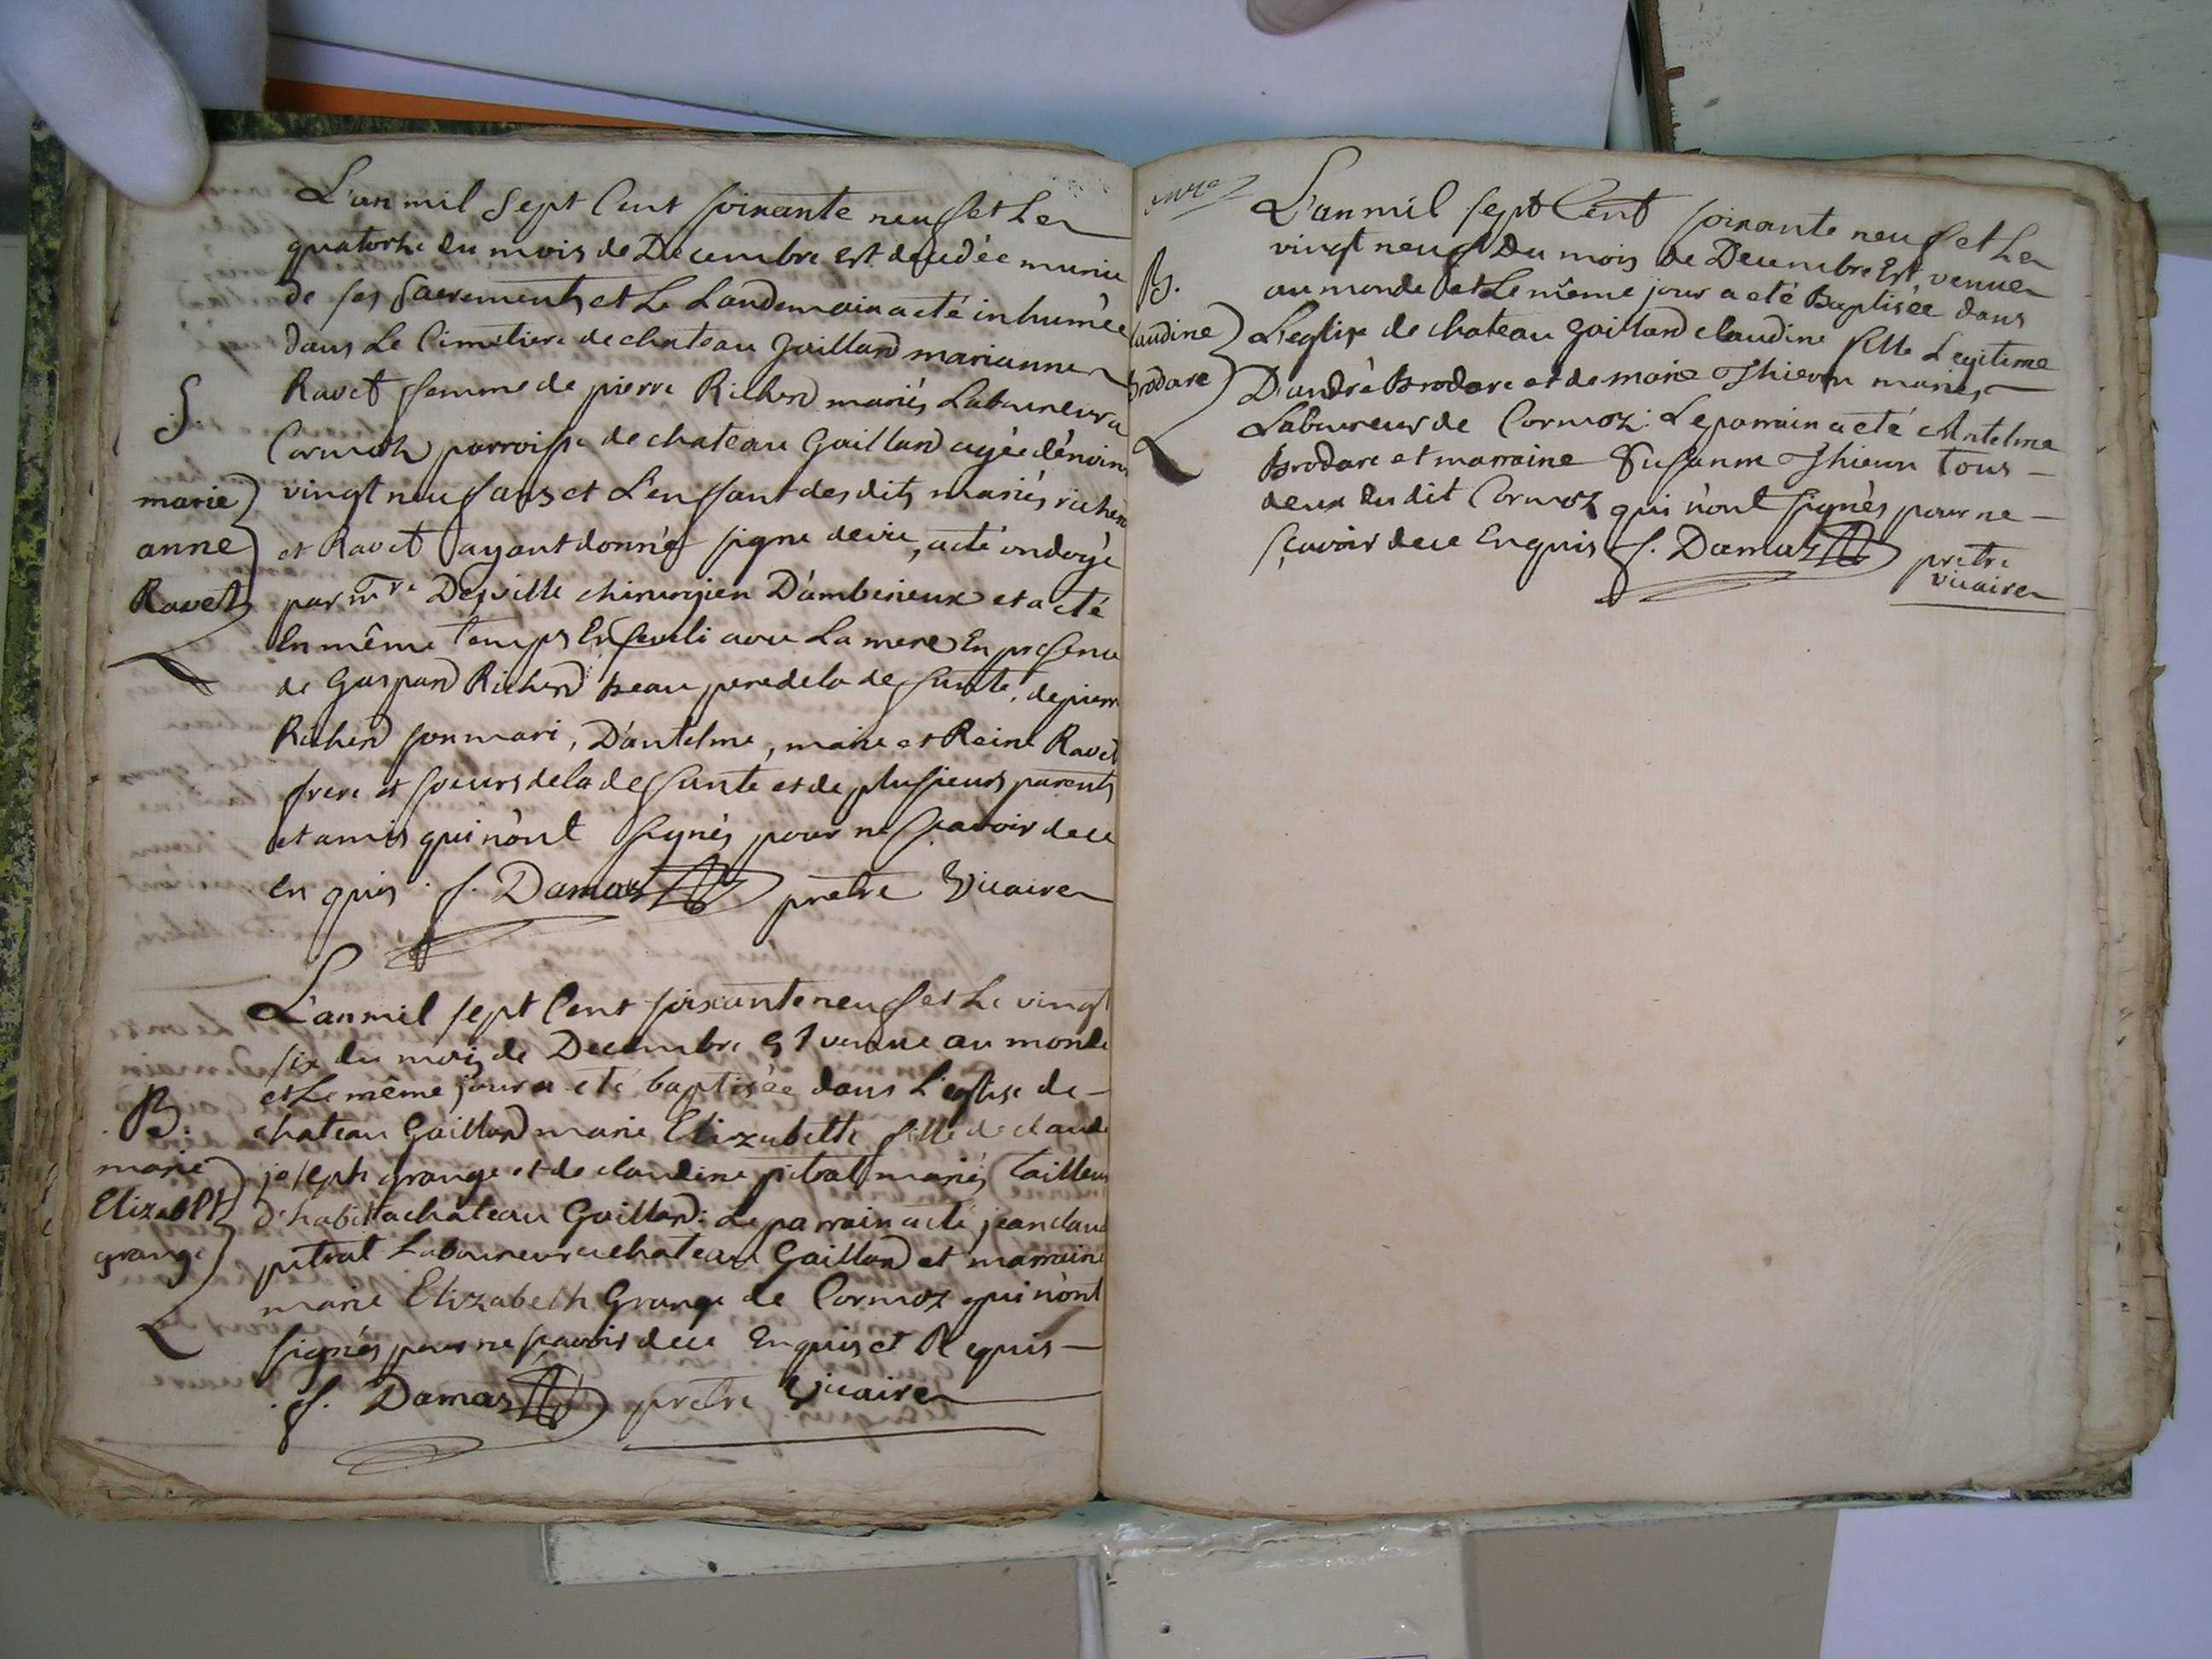 L'an mil Sept Cent soixante neuf et Le
quatorse du mois de Decembre Est decedée munie
de ses Sacrements et Le Landemain a eté inhumée
dans Le Cimetiere de chateau Gaillard marianne
Ravet femme de pierre Richerd mariés Laboureur a
Cormoz parroisse de chateau Gaillard agée dénviron
vingt neuf ans et L'enfant desdits mariés richerd
et Ravet ayant donné signe de vie, a eté ondoyé
par mre Deville chirurgien D'ambérieux et a eté
En même temps Enseveli avec La mere En presence
de Gaspard Richerd beau pere de la defunte, de pierre
Richerd son mari, D'antelme, marie et Reine Ravet
frere et soeurs de la defunte et de plusieurs parents
et amis qui n'ont signés pour ne sçavoir de ce
en quis. f. Damas prêtre Vicaire
S.
marie
anne
Ravet
L'an mil sept Cent soixante neuf et Le vingt
six du mois de Decembre Est venue au monde
et Le même jour a eté baptisée dans L'eglise de
chateau Gaillard marie Elizabeth fille de claude
joseph grange et de claudine pitrat mariés Tailleur
d'habit a château Gaillard: Le parrain a eté jean claude
pitrat Laboureur a chateau Gaillard et marraine
marie Elizabeth Grange de Cormoz qui n'ont
signés pour ne sçavoir de ce Enquis et Requis
f. Damas prêtre Vicaire
B.
marie
Elizabeth
grange
L'an mil sept Cent soixante neuf et Le
vingt neuf Du mois de Decembre Est venue
au monde et Le même jour a eté Baptisée dans
L'eglise de chateau Gaillard claudine fille Legitime
D'andré Brodare et de marie Thievon mariés
Laboureur de Cormoz: Le parrain a eté Antelme
Brodare et marraine Susanne Thievon Tous
deux du dit Cormoz qui n'ont signés pour ne
sçavoir de ce Enquis f. Damas prêtre
vicaire
B.
laudine
brodare